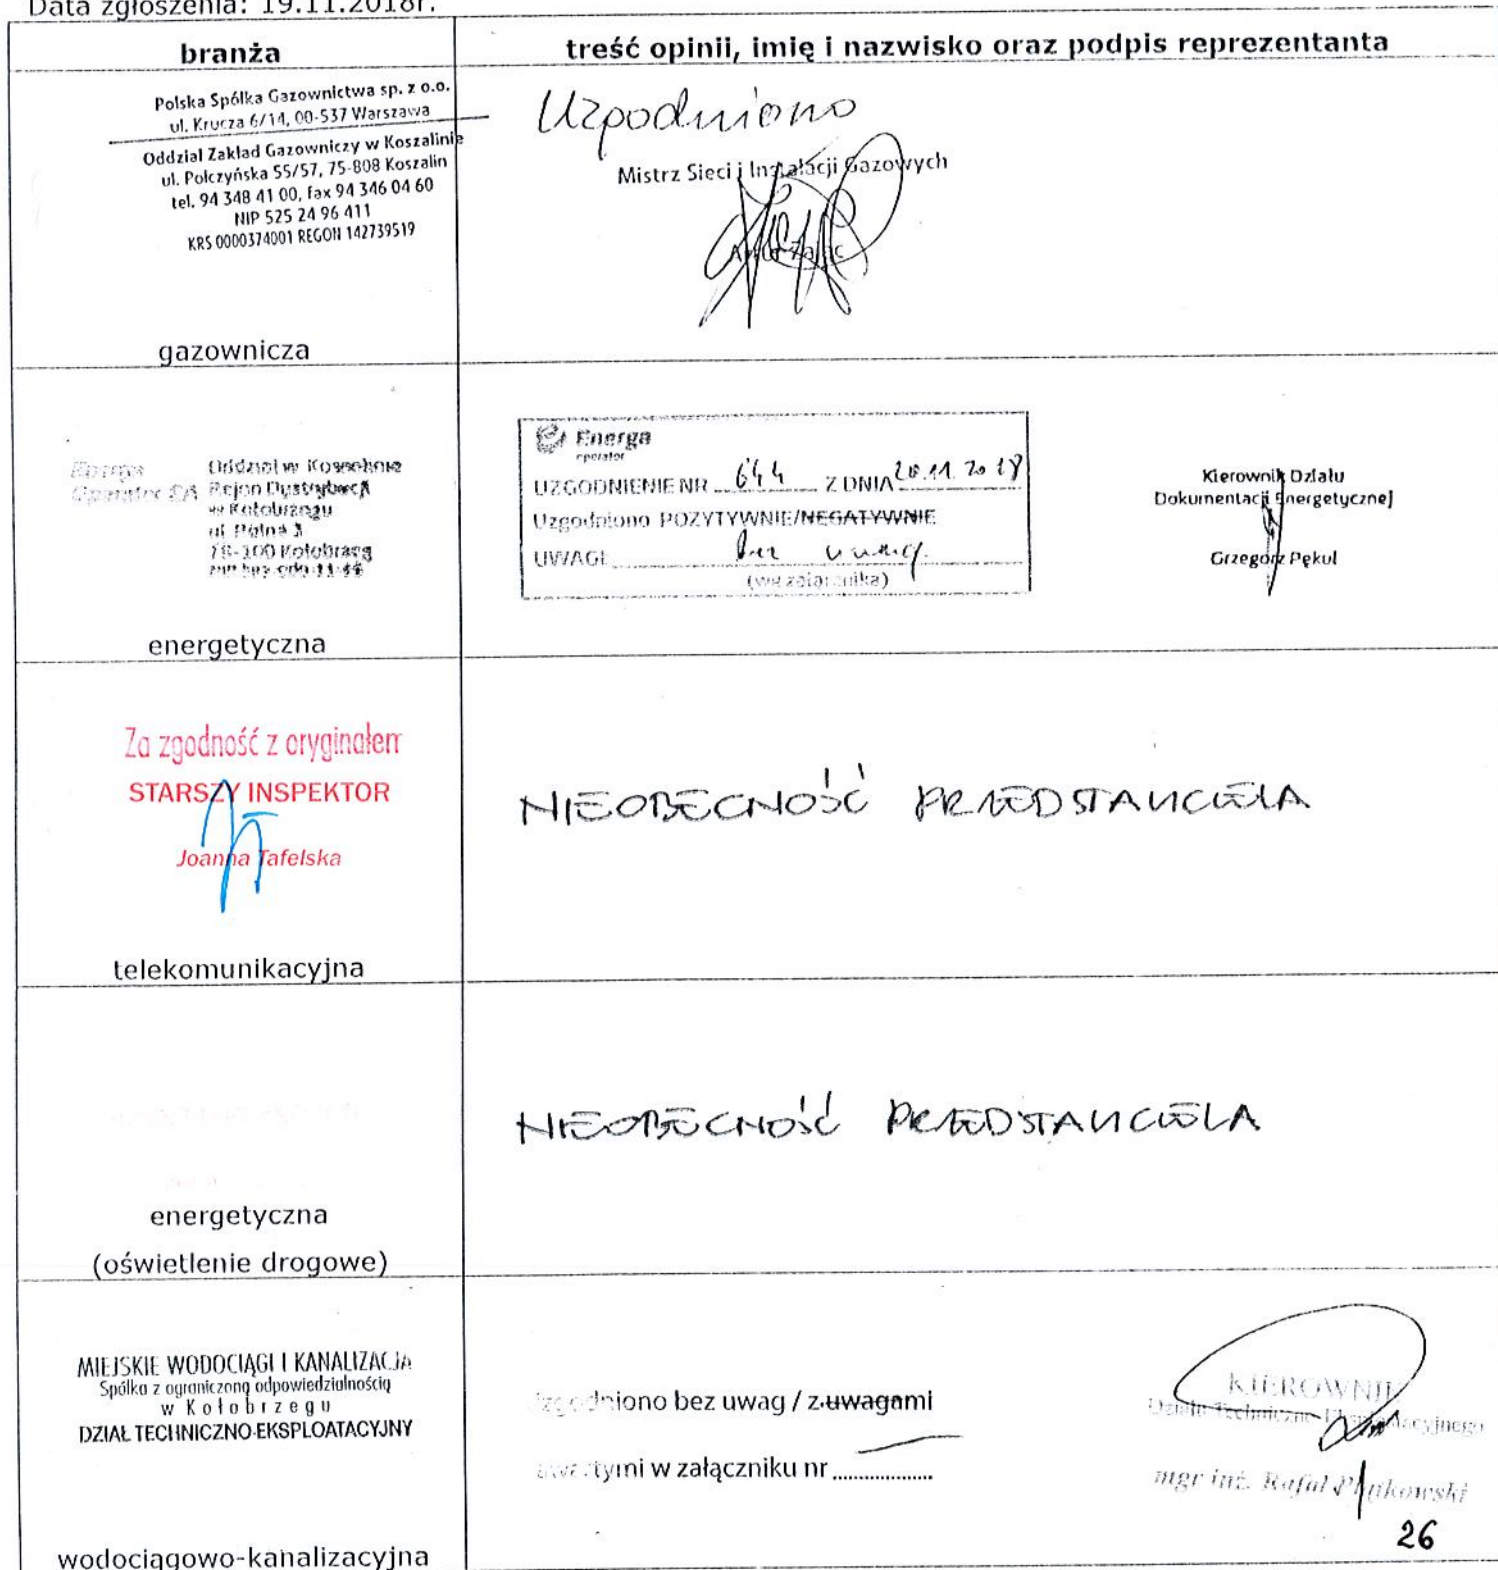 Data zgłoszenia: 19.11.2018r.
branża
treść opinii, imię i nazwisko oraz podpis reprezentanta
Polska Spółka Gazownictwa sp. z o.o.
ul. Krucza 6/14, 00-537 Warszawa
Oddział Zakład Gazowniczy w Koszalinie
ul. Połczyńska 55/57, 75-808 Koszalin
tel. 94 348 41 00, fax 94 346 04 60
NIP 525 24 96 411
KRS 0000374001 REGON 142739519
gazownicza
Uzgodniono
Mistrz Sieci i Instalacji Gazowych
Zając
Energa Oddział w Koszalinie
Operator SA Rejon Dystrybucji
w Kołobrzegu
ul. Polna 3
78-100 Kołobrzeg
energetyczna
Energa
operator
UZGODNIENIE NR 644 Z DNIA 20.11.2018
Uzgodniono POZYTYWNIE/NEGATYWNIE
UWAGI bez uwag
(wg załącznika)
Kierownik Działu
Dokumentacji Energetycznej
Grzegorz Pękul
Za zgodność z oryginałem
STARSZY INSPEKTOR
Joanna Tafelska
telekomunikacyjna
NIEOBECNOŚĆ PRZEDSTAWICIELA
energetyczna
(oświetlenie drogowe)
NIEOBECNOŚĆ PRZEDSTAWICIELA
MIEJSKIE WODOCIĄGI I KANALIZACJA
Spółka z ograniczoną odpowiedzialnością
w Kołobrzegu
DZIAŁ TECHNICZNO-EKSPLOATACYJNY
wodociągowo-kanalizacyjna
Uzgodniono bez uwag / z uwagami
zawartymi w załączniku nr ...................
KIEROWNIK
Działu Techniczno-Eksploatacyjnego
mgr inż. Rafał
26